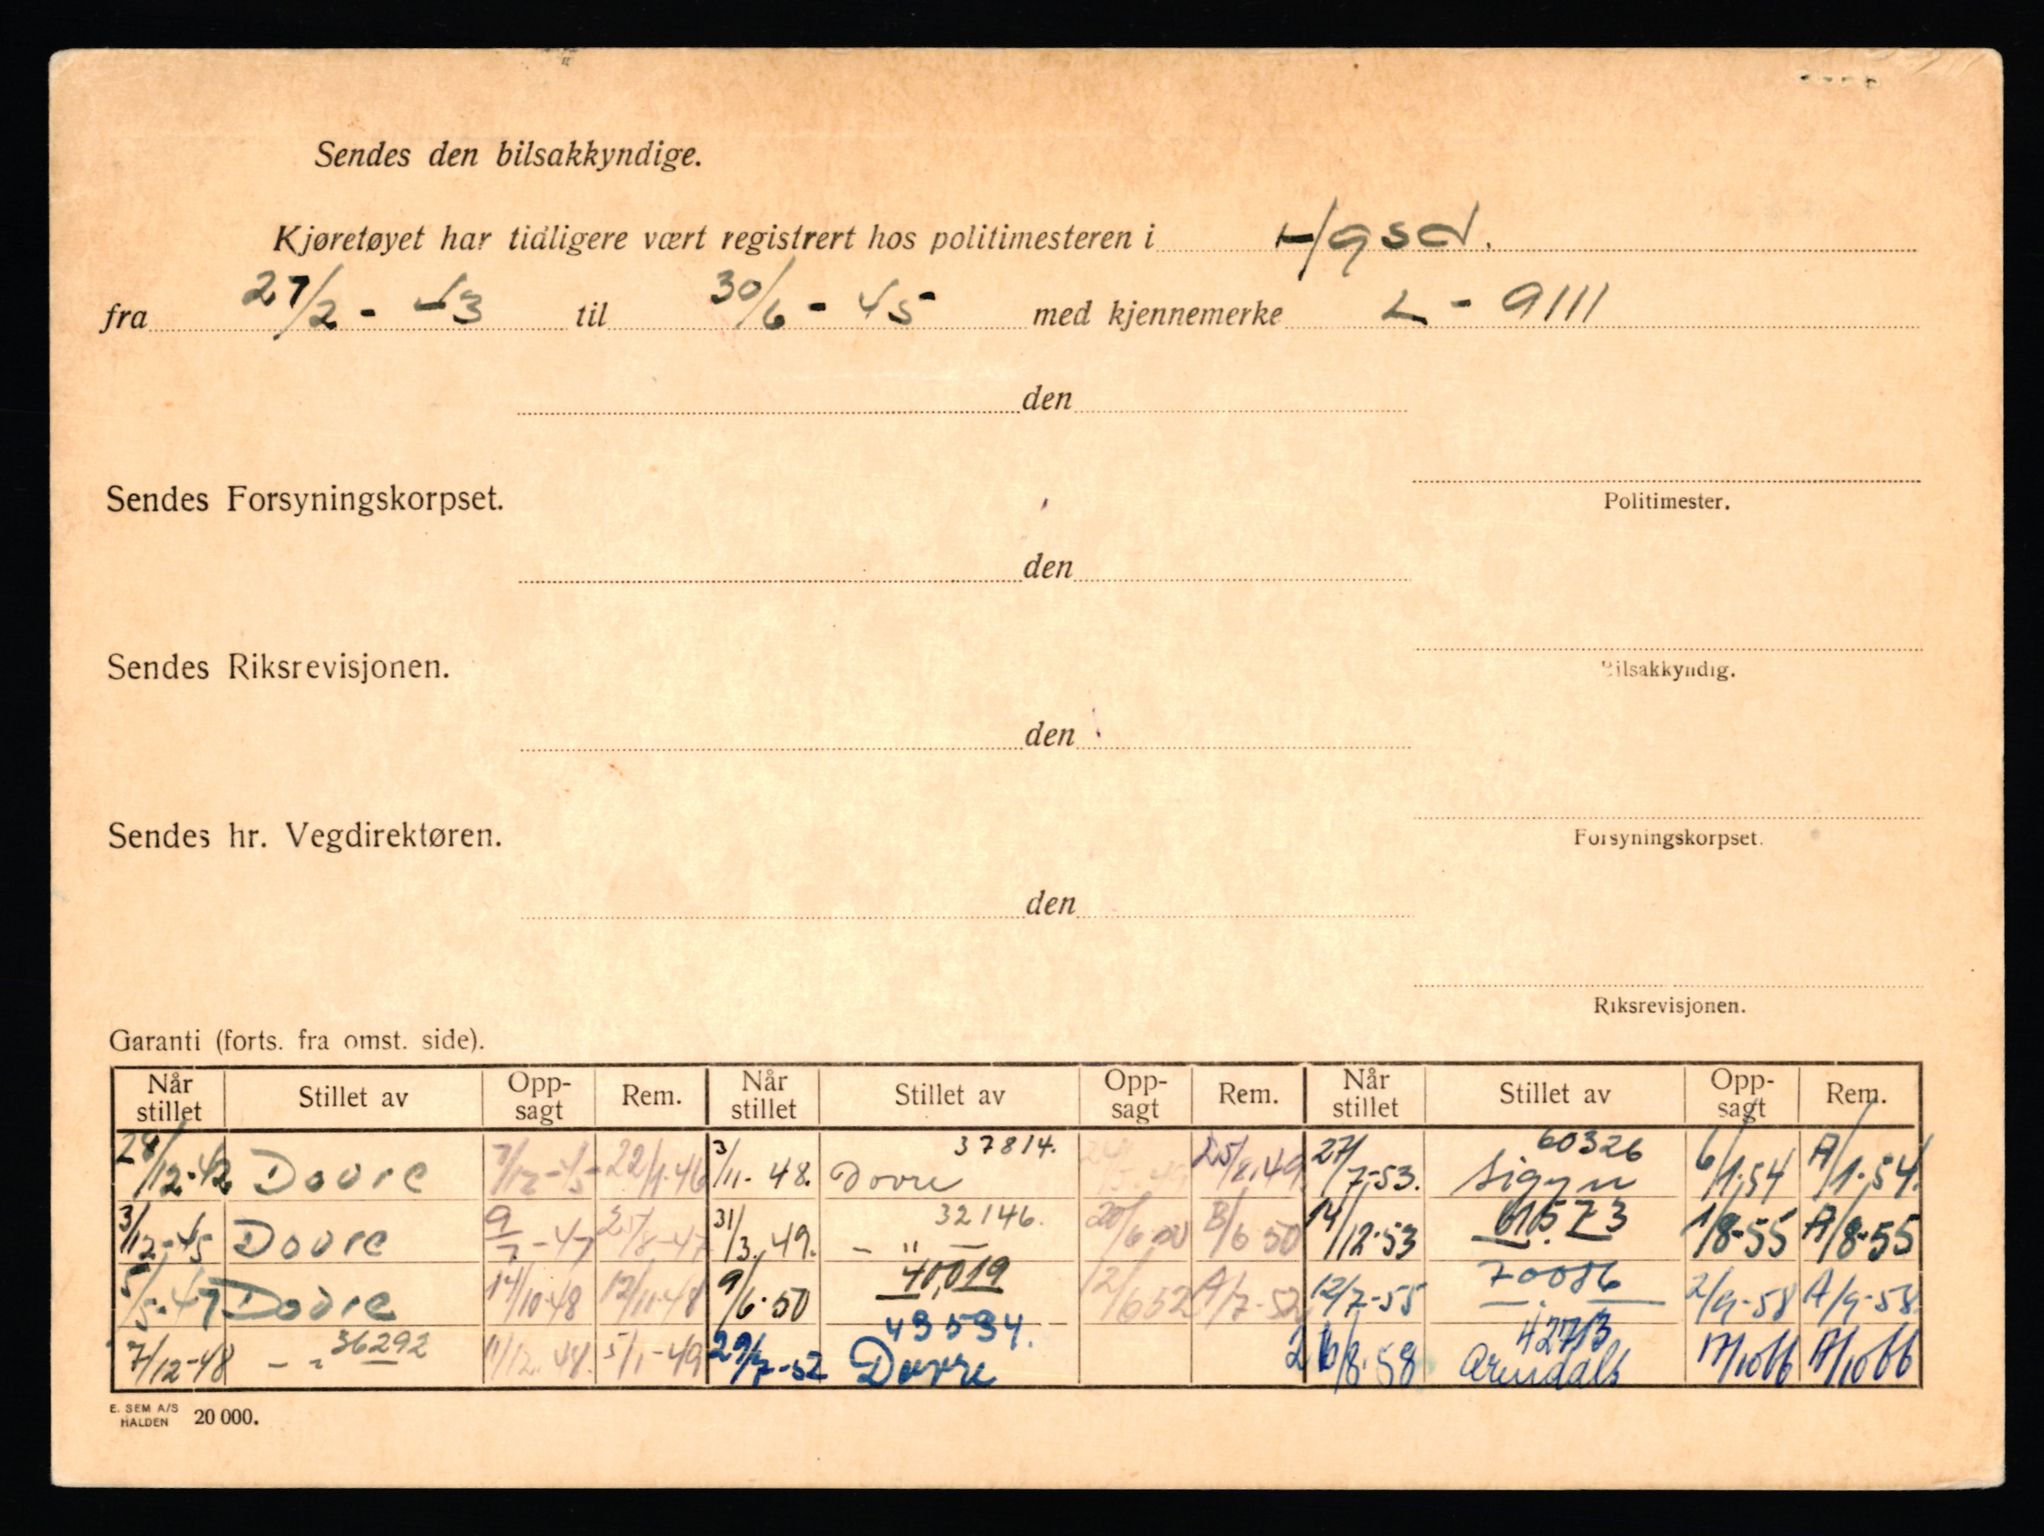 Sendes den bilsakkyndige.
Kjøretøyet har tidligere vært registrert hos politimesteren i Hgsd.
fra 27/2 - 43 til 30/6 - 45 med kjennemerke L - 9111
den
Sendes Forsyningskorpset.
Politimester.
den
Sendes Riksrevisjonen.
Bilsakkyndig.
den
Sendes hr. Vegdirektøren.
Forsyningskorpset.
den
Riksrevisjonen.
Garanti (forts. fra omst. side).
Når stillet Stillet av Opp-sagt Rem. Når stillet Stillet av Opp-sagt Rem. Når stillet Stillet av Opp-sagt Rem.
28/12-42 Dovre 7/12-45 22/1-46 3/11-48. 37814. Dovre 25/8.49. 27/7-53. 60326 Sigyn 6/1-54 A/1-54.
3/12-45 Dovre 9/7-47 25/8-47 31/3.49. 32146. - " - 20/6-50 B/6 50 14/12-53 61573 1/8-55 A/8-55
5/5-47 Dovre 14/10-48 12/11-48 9/6-50 40,019 12/6 52 A/7-52 12/7-55 70086 2/9-58 A/9-58.
7/12-48 - " 36292 11/12.48. 5/1-49 29/7-52 49594. Dovre 26/8-58 42713 Arendals 17/10 66 A/10 66
E. SEM A/S
HALDEN 20 000.